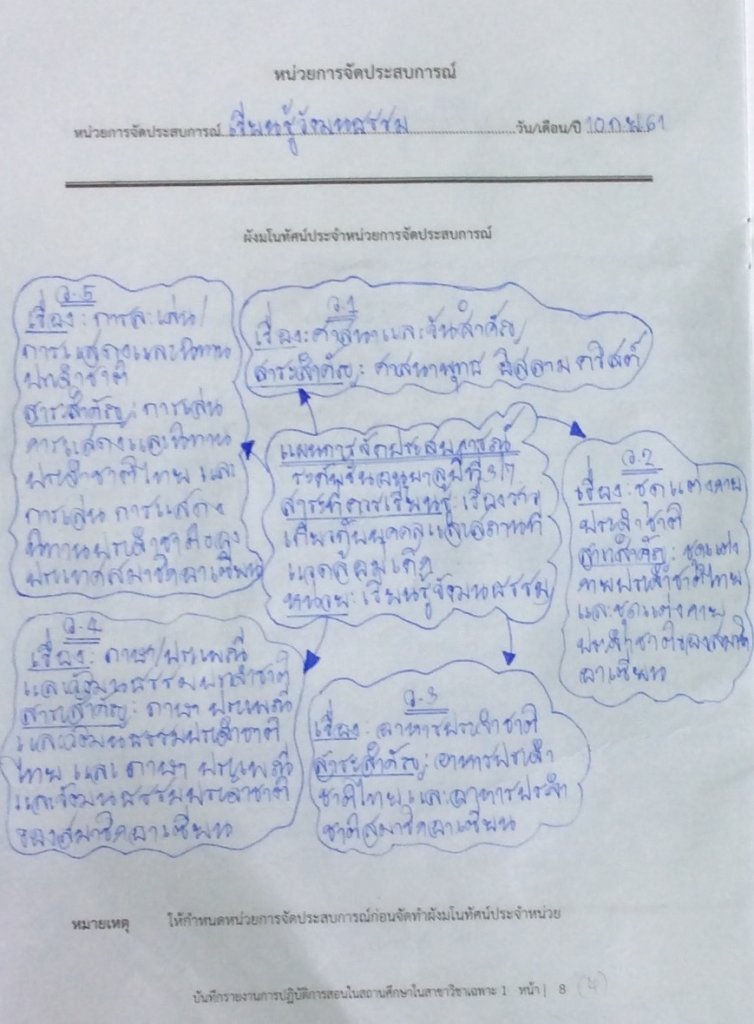 หน่วยการจัดประสบการณ์
หน่วยการจัดประสบการณ์ เรียนรู้วัฒนธรรม วัน/เดือน/ปี 10 ก.พ. 61
ผังมโนทัศน์ประจำหน่วยการจัดประสบการณ์
ว.5
เรื่อง : การละเล่น/
การแสดงและนิทาน
ประจำชาติ
สาระสำคัญ : การเล่น
การแสดงและนิทาน
ประจำชาติไทย และ
การเล่น การแสดง
นิทานประจำชาติของ
ประเทศสมาชิกอาเซียน
ว.1
เรื่อง : ศาสนาและวันสำคัญ
สาระสำคัญ : ศาสนาพุทธ อิสลาม คริสต์
แผนการจัดประสบการณ์
ระดับชั้นอนุบาลปีที่ 3/7
สาระที่ควรเรียนรู้ เรื่องราว
เกี่ยวกับบุคคลและสถานที่
แวดล้อมเด็ก
หน่วย : เรียนรู้วัฒนธรรม
ว.2
เรื่อง : ชุดแต่งกาย
ประจำชาติ
สาระสำคัญ : ชุดแต่ง
กายประจำชาติไทย
และชุดแต่งกาย
ประจำชาติของสมาชิก
อาเซียน
ว.4
เรื่อง : ภาษา/ประเพณี
และวัฒนธรรมประจำชาติ
สาระสำคัญ : ภาษา ประเพณี
และวัฒนธรรมประจำชาติ
ไทย และ ภาษา ประเพณี
และวัฒนธรรมประจำชาติ
ของสมาชิกอาเซียน
ว.3
เรื่อง : อาหารประจำชาติ
สาระสำคัญ : อาหารประจำ
ชาติไทย และอาหารประจำ
ชาติสมาชิกอาเซียน
หมายเหตุ ให้กำหนดหน่วยการจัดประสบการณ์ก่อนจัดทำผังมโนทัศน์ประจำหน่วย
บันทึกรายงานการปฏิบัติการสอนในสถานศึกษาในสาขาวิชาเฉพาะ 1 หน้า | 8